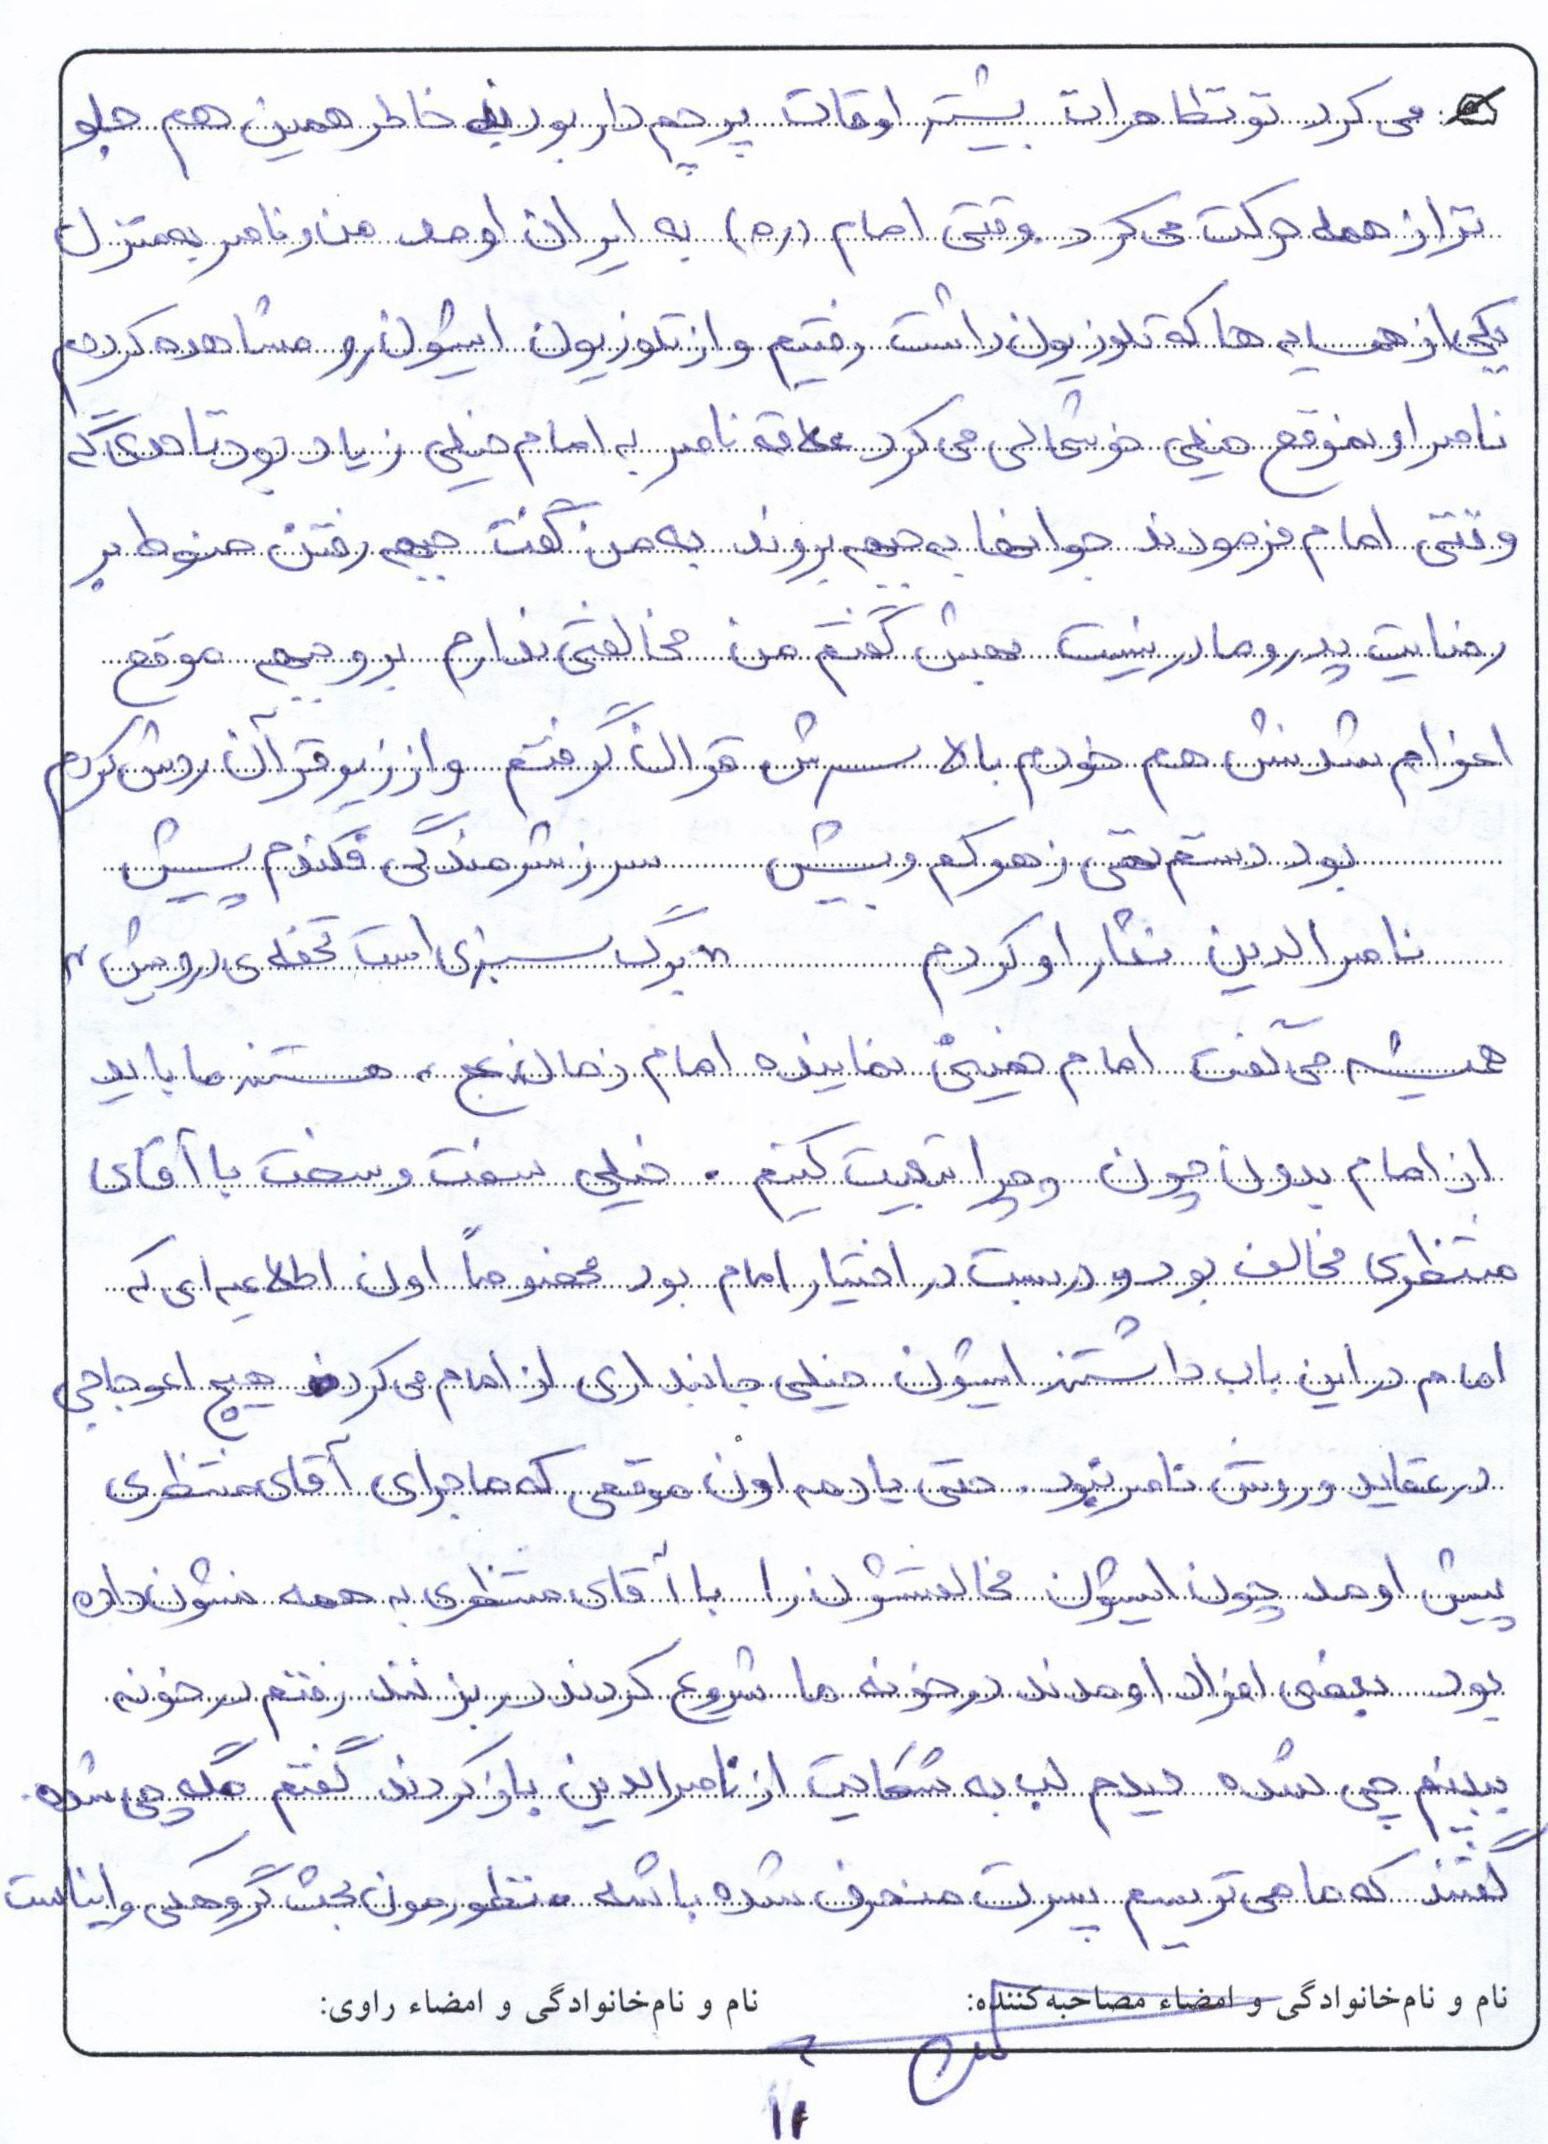 می کرد تو تظاهرات بیشتر اوقات پرچم دار بود به خاطر همین هم جلو
تر از همه حرکت می کرد وقتی امام (ره) به ایران اومد من و ناصر به منزل
یکی از همسایه ها که تلوزیون داشت رفتیم و از تلوزیون ایشون رو مشاهده کردم
ناصر اونموقع خیلی خوشحالی می کرد علاقه ناصر به امام خیلی زیاد بود تا حدی که
وقتی امام فرمودند جوانها به جبهه بروند به من گفت جبهه رفتن منوط بر
رضایت پدر و مادر نیست بهش گفتم من مخالفتی ندارم برو جبهه موقع
اعزام شدنش هم خودم بالا سرش قران گرفتم و از زیر قرآن ردش کردم
بود دستم تهی ز هر کم و بیش سر ز شرمندگی فکندم پیش
ناصرالدین نثار او کردم " برگ سبزی است تحفه ی درویش "
همیشه می گفت امام خمینی نماینده امام زمان "عج" هستند ما باید
از امام بدون چون و چرا تبعیت کنیم . خیلی سفت و سخت با آقای
منتظری مخالف بود و دربست در اختیار امام بود مخصوصاً اون اطلاعیه ای که
امام در این باب داشتند ایشون خیلی جانبداری از امام می کرد هیچ اعوجاجی
در عقاید و روش ناصر نبود . حتی یادمه اون موقعی که ماجرای آقای منتظری
پیش اومد چون ایشون مخالفتشون را با آقای منتظری به همه نشون داده
بود بعضی افراد اومدند در خونه ما شروع کردند در بزنند رفتم در خونه
ببینم چی شده دیدم لب به شکایت از ناصرالدین باز کردند گفتم مگه چی شده
گفتند که ما می ترسیم پسرت منحرف شده باشه منظورمون بحث گروهکی و ایناست
نام و نام‌خانوادگی و امضاء مصاحبه‌کننده: نام و نام‌خانوادگی و امضاء راوی: